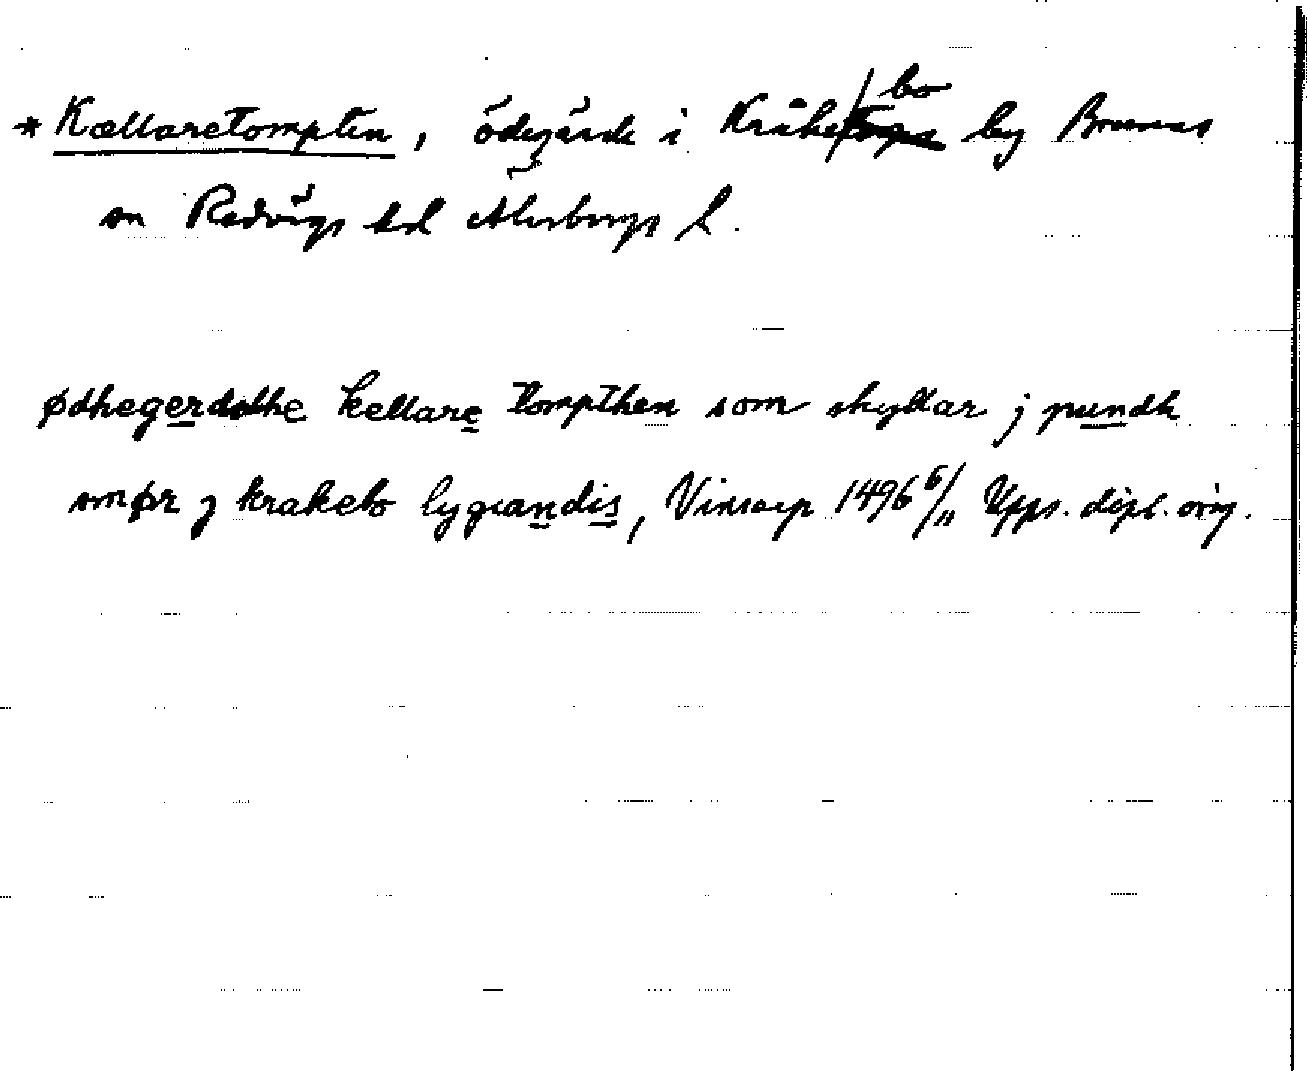 * Kællaretompten, ödegärde i Kråkebo by Brunns
sn Redvägs hd Älvsborgs L.
ødhegerdhthe kellare tompthen som skyllar j pundh
smør j krakebo lygiandis, Vinsarp 1496 6/11 Upps. dipl. orig.